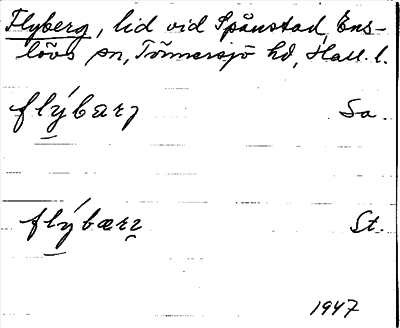 Flyberg, lid vid Spånstad, Ens-
lövs sn, Tönnersjö hd, Hall. l.
flýbærȝ Sa.
flýbærȝ St.
1947